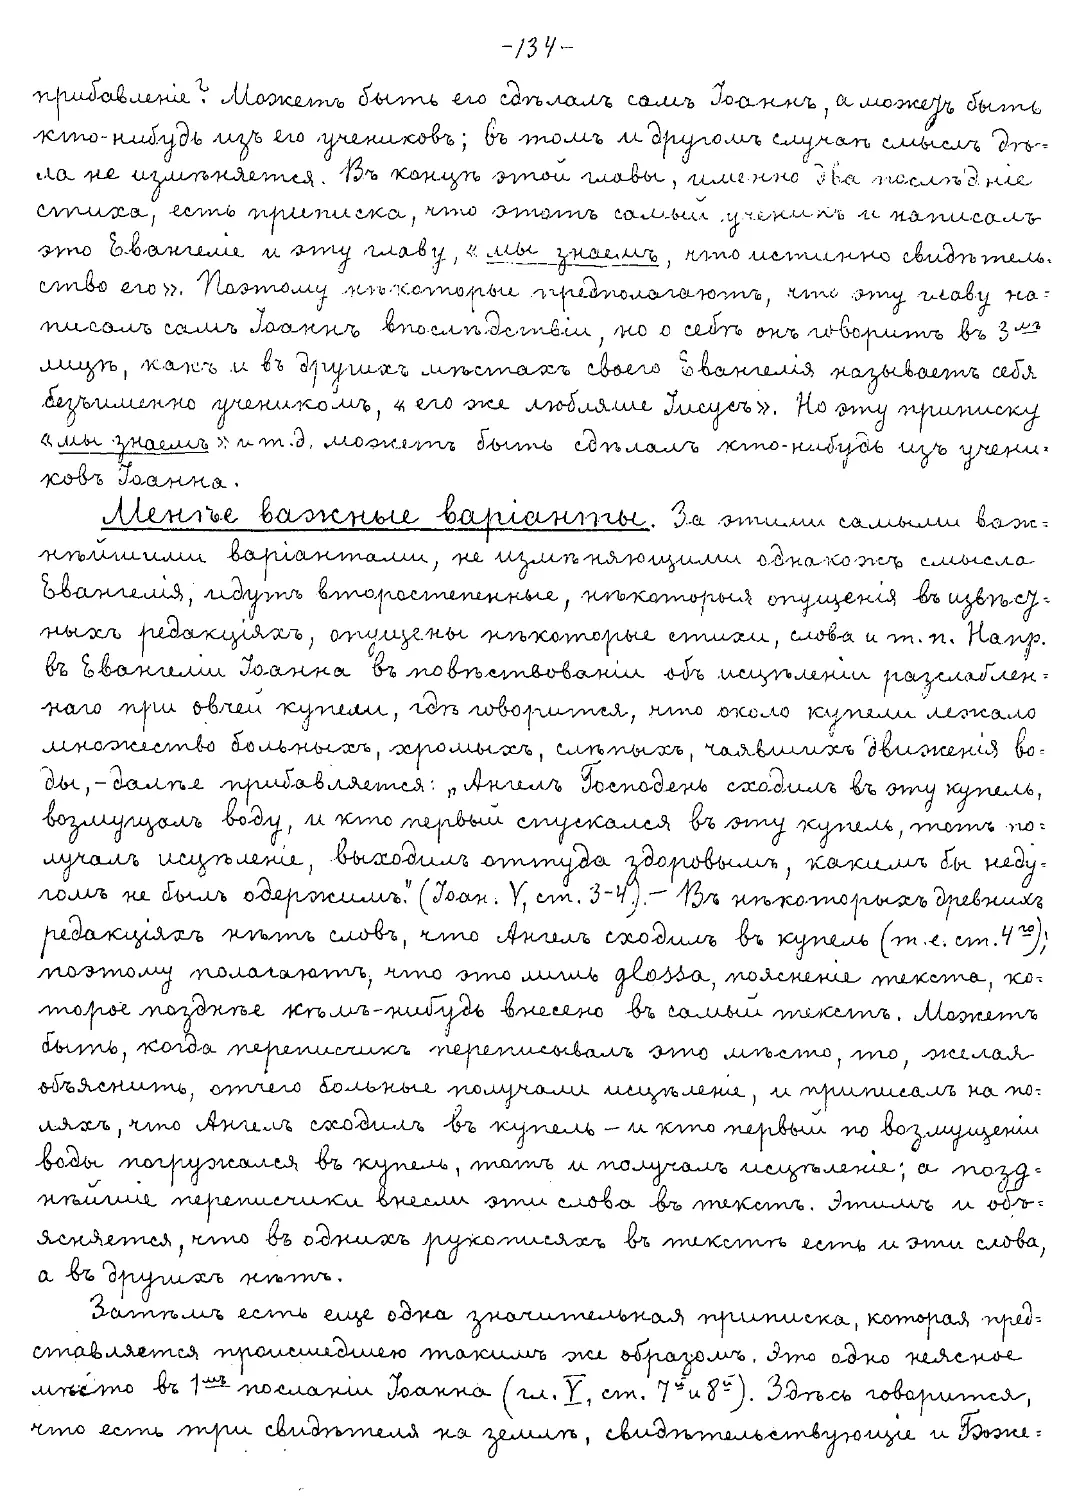 -134-
прибавленіе? Можетъ быть его сдѣлалъ самъ Іоаннъ, а можетъ быть
кто-нибудь изъ его учениковъ; въ томъ и другомъ случаѣ смыслъ дѣ=
ла не измѣняется. Въ концѣ этой главы, именно два послѣдніе
стиха, есть приписка, что этотъ самый ученикъ и написалъ
это Евангеліе и эту главу, «мы знаемъ, что истинно свидѣтель=
ство его». Поэтому нѣкоторые предполагаютъ, что эту главу на=
писалъ самъ Іоаннъ впослѣдствіи, но о себѣ онъ говоритъ въ 3мъ
лицѣ, какъ и въ другихъ мѣстахъ своего Евангелія называетъ себя
безъименно ученикомъ, «его же любляше Іисусъ». Но эту приписку
«мы знаемъ» и т.д. можетъ быть сдѣлалъ кто-нибудь изъ учени=
ковъ Іоанна.
Менѣе важные варіанты. За этими самыми важ=
нѣйшими варіантами, не измѣняющими однакожъ смысла
Евангелія, идутъ второстепенные, нѣкоторыя опущенія въ извѣст=
ныхъ редакціяхъ, опущены нѣкоторые стихи, слова и т.п. Напр.
въ Евангеліи Іоанна въ повѣствованіи объ исцѣленіи разслаблен=
наго при овчей купели, гдѣ говорится, что около купели лежало
множество больныхъ, хромыхъ, слѣпыхъ, чаявшихъ движенія во=
ды,-далѣе прибавляется: „Ангелъ Господень сходилъ въ эту купель,
возмущалъ воду, и кто первый спускался въ эту купель, тотъ по=
лучалъ исцѣленіе, выходилъ оттуда здоровымъ, какимъ бы неду=
гомъ не былъ одержимъ." (Іоан. V, ст. 3-4).- Въ нѣкоторыхъ древнихъ
редакціяхъ нѣтъ словъ, что Ангелъ сходилъ въ купель (т.е. ст. 4го);
поэтому полагаютъ, что это лишь glossa, поясненіе текста, ко=
торое позднѣе кѣмъ-нибудь внесено въ самый текстъ. Можетъ
быть, когда переписчикъ переписывалъ это мѣсто, то, желая
объяснить, отчего больные получали исцѣленіе, и приписалъ на по=
ляхъ, что Ангелъ сходилъ въ купель - и кто первый по возмущеніи
воды погружался въ купель, тотъ и получалъ исцѣленіе; а позд=
нѣйшіе переписчики внесли эти слова въ текстъ. Этимъ и объ=
ясняется, что въ однихъ рукописяхъ въ текстѣ есть и эти слова,
а въ другихъ нѣтъ.
Затѣмъ есть еще одна значительная приписка, которая пред=
ставляется происшедшею такимъ же образомъ. Это одно неясное
мѣсто въ 1мъ посланіи Іоанна (гл. V, ст. 7й и 8й). Здѣсь говорится,
что есть три свидѣтеля на землѣ, свидѣтельствующіе и Боже=